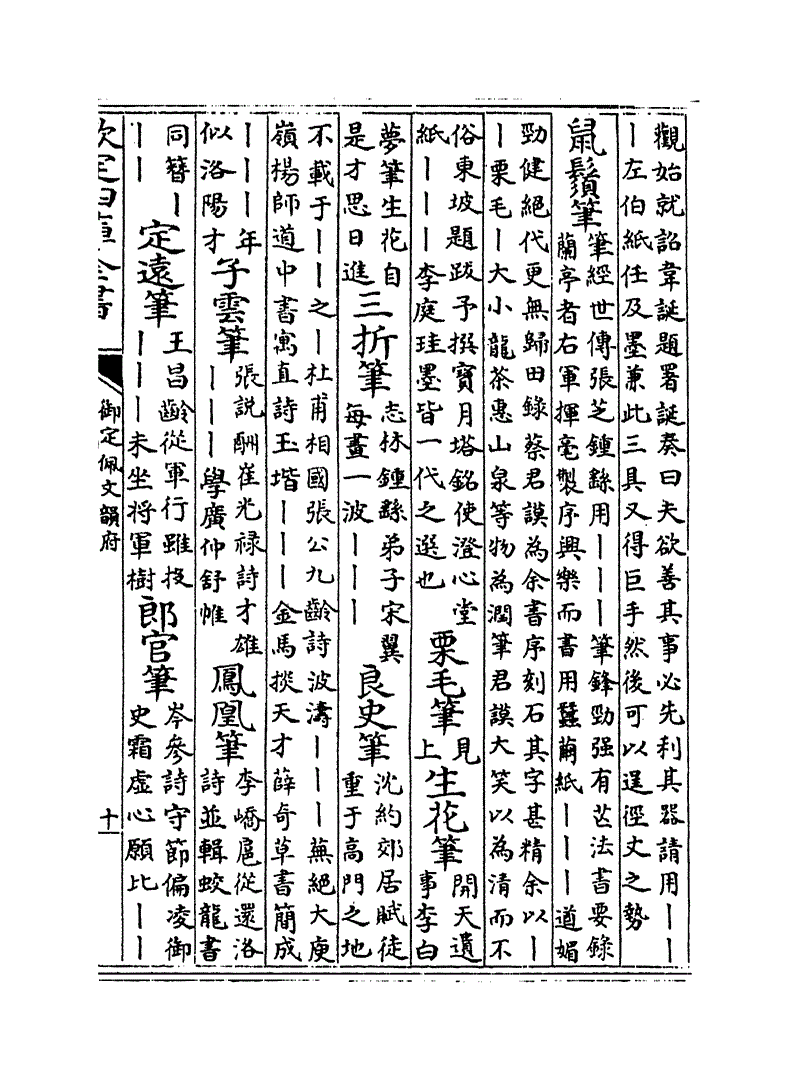 觀始就詔韋誕題署誕奏曰夫欲善其事必先利其器請用丨丨
丨左伯紙任及墨兼此三具又得巨手然後可以逞徑丈之勢
鼠鬚筆
筆經世傳張芝鍾繇用丨丨丨筆鋒勁强有芒法書要錄
蘭亭者右軍揮毫製序興樂而書用蠶繭紙丨丨丨遒媚
勁健絕代更無歸田錄蔡君謨為余書序刻石其字甚精余以丨
丨栗毛丨大小龍茶惠山泉等物為潤筆君謨大笑以為清而不
俗東坡題跋予撰寶月塔銘使澄心堂
紙丨丨丨李庭珪墨皆一代之選也
栗毛筆
見
上
生花筆
開天遺
事李白
夢筆生花自
是才思日進
三折筆
志林鍾繇弟子宋翼
每畫一波丨丨丨
良史筆
沈約郊居賦徒
重于高門之地
不載于丨丨之丨杜甫相國張公九齡詩波濤丨丨丨蕪絕大庾
嶺楊師道中書寓直詩玉堦丨丨丨金馬掞天才薛奇草書簡成
丨丨丨年
似洛陽才
子雲筆
張説酬崔光禄詩才雄
丨丨丨學廣仲舒帷
鳳凰筆
李嶠扈從還洛
詩並輯蛟龍書
同簪丨
丨丨
定遠筆
王昌齡從軍行雖投
丨丨丨未坐將軍樹
郎官筆
岑參詩守節偏凌御
史霜虛心願比丨丨
欽定四庫全書
御定佩文韻府
十一